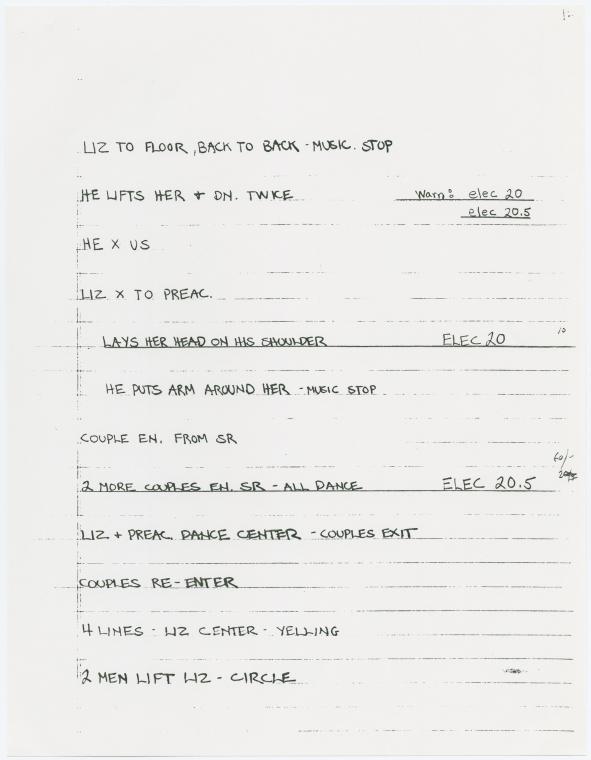 LIZ TO FLOOR, BACK TO BACK - MUSIC. STOP
HE LIFTS HER + DN. TWICE Warn: elec 20
elec 20.5
HE X US
LIZ X TO PREAC.
LAYS HER HEAD ON HIS SHOULDER ELEC 20 10
HE PUTS ARM AROUND HER - MUSIC STOP
COUPLE EN. FROM SR
60/-
2 MORE COUPLES EN. SR - ALL DANCE ELEC 20.5
LIZ + PREAC. DANCE CENTER - COUPLES EXIT
COUPLES RE-ENTER
4 LINES - LIZ CENTER - YELLING
2 MEN LIFT LIZ - CIRCLE